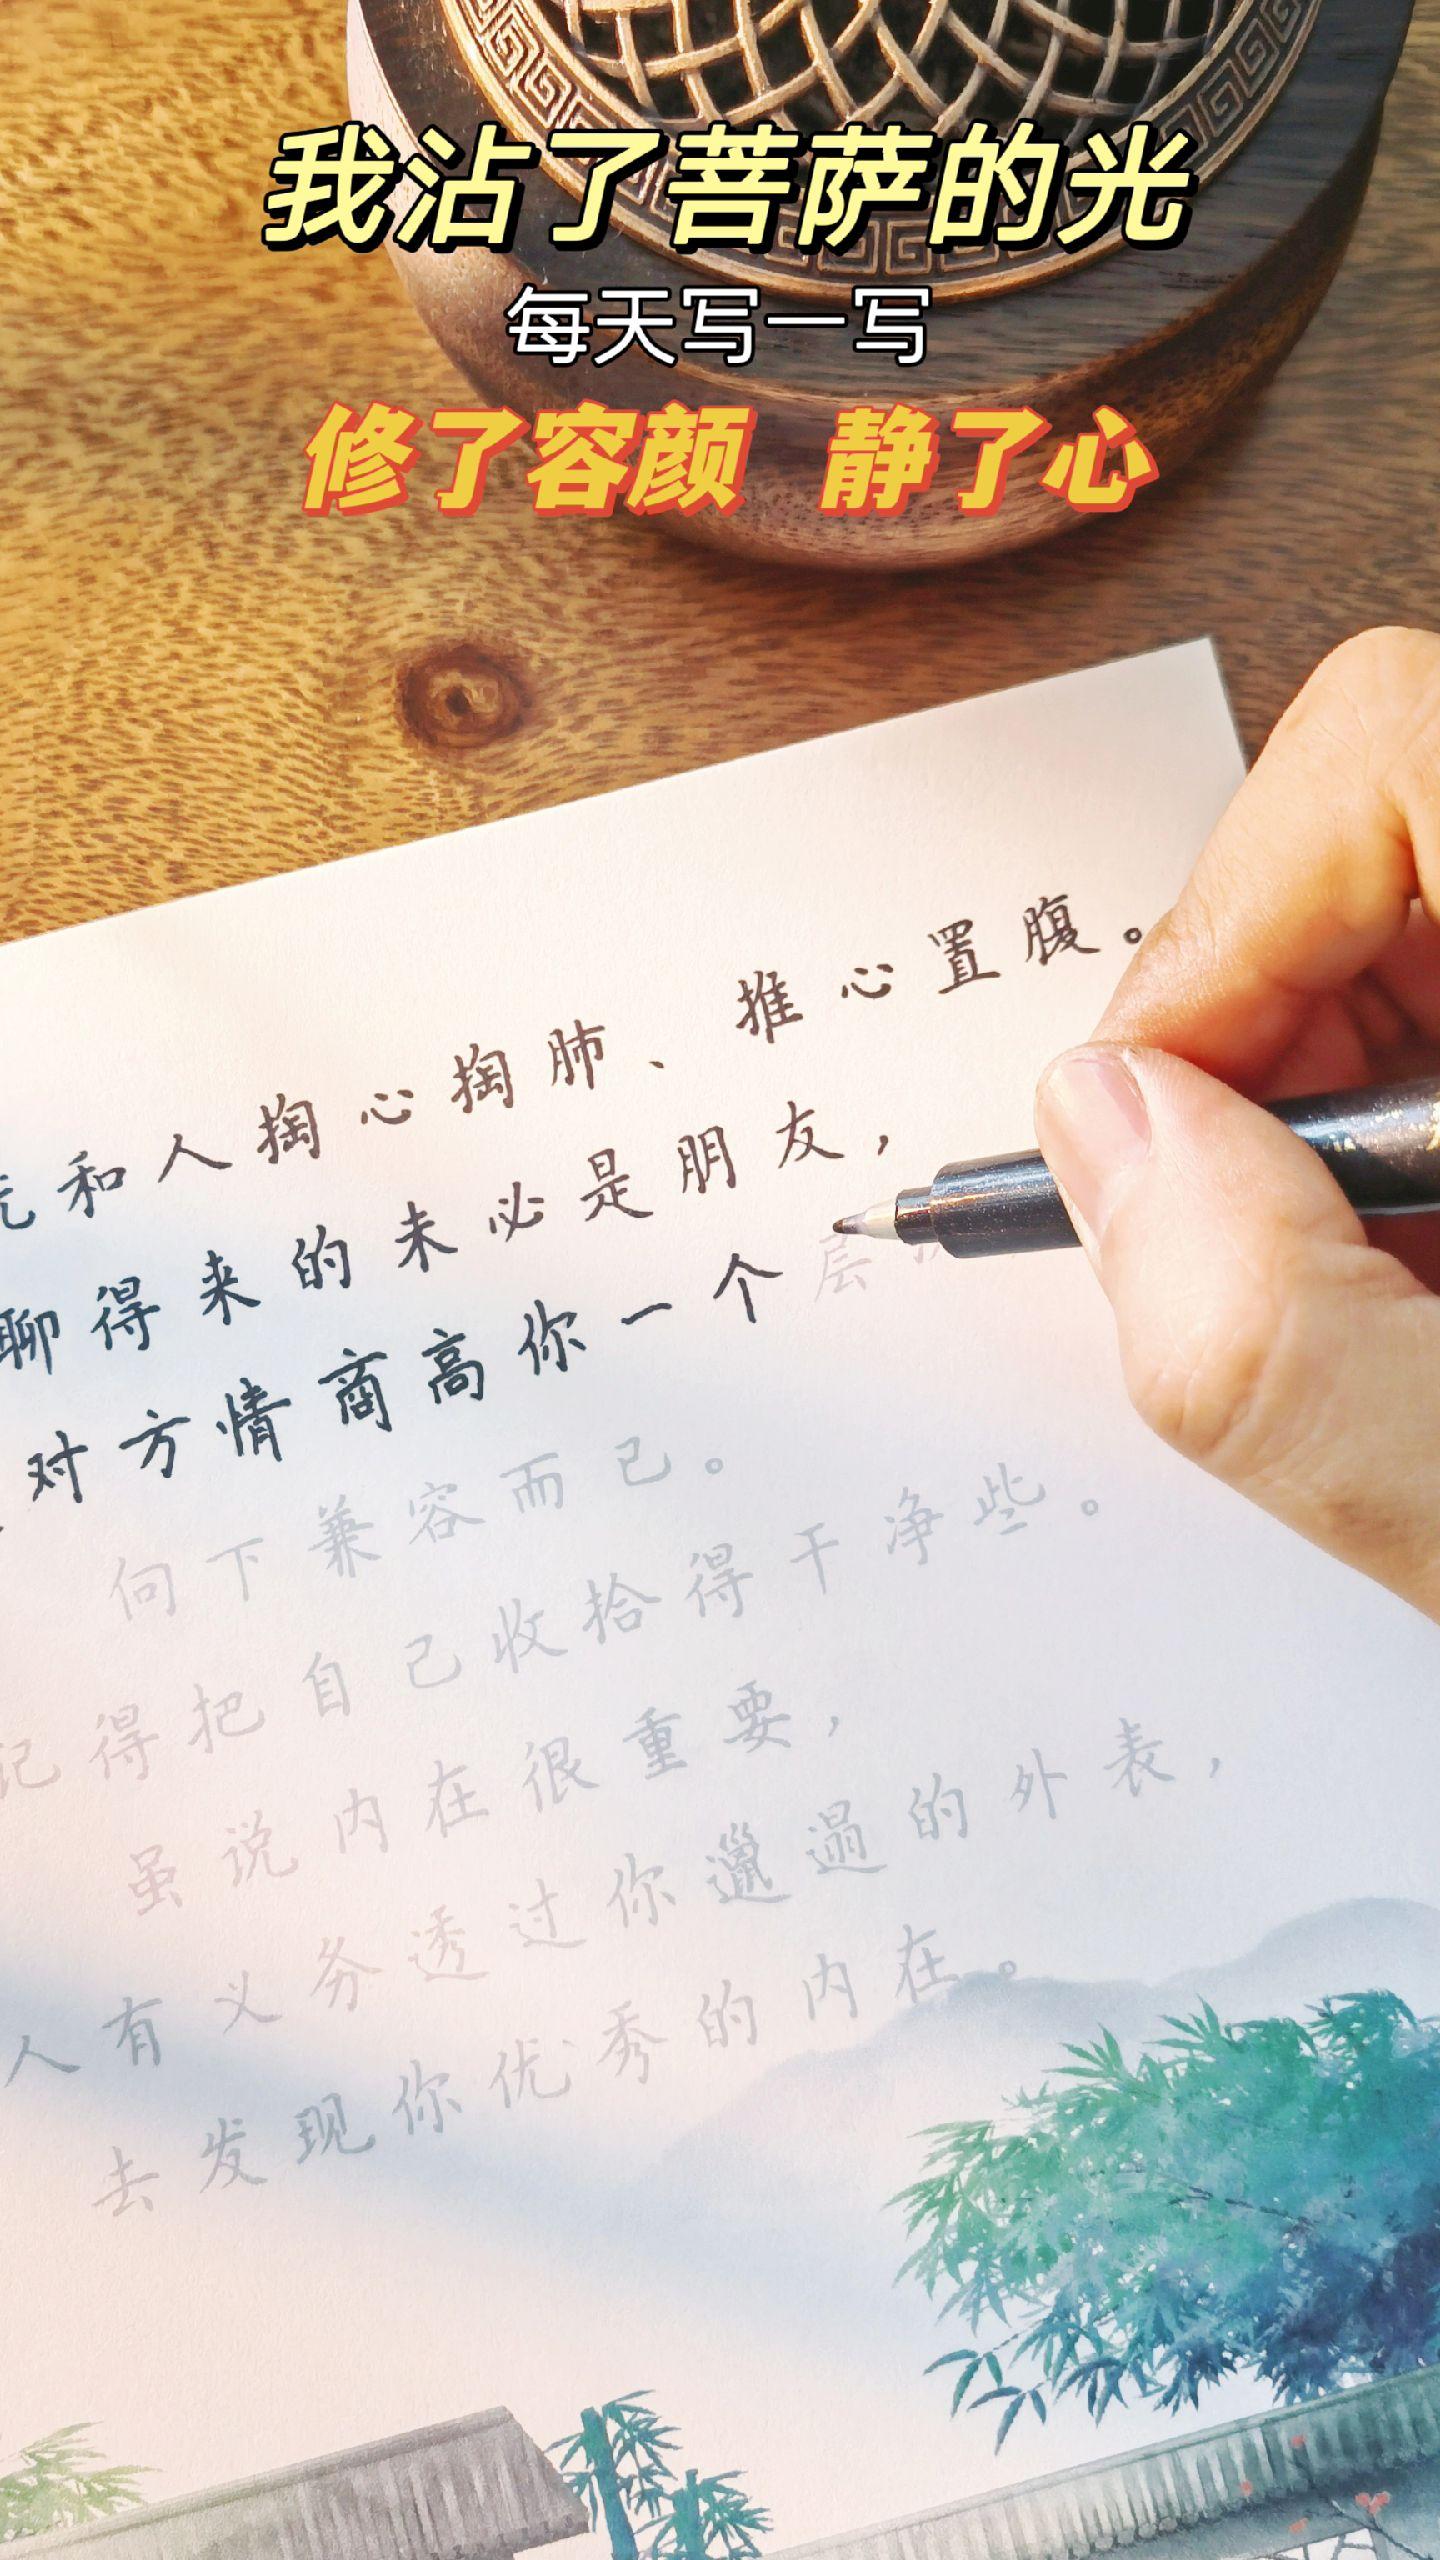 我沾了菩萨的光
每天写一写
修了容颜 静了心
和人掏心掏肺、推心置腹。
聊得来的未必是朋友，
对方情商高你一个层
向下兼容而已。
记得把自己收拾得干净些。
虽说内在很重要，
人有义务透过你邋遢的外表，
去发现你优秀的内在。